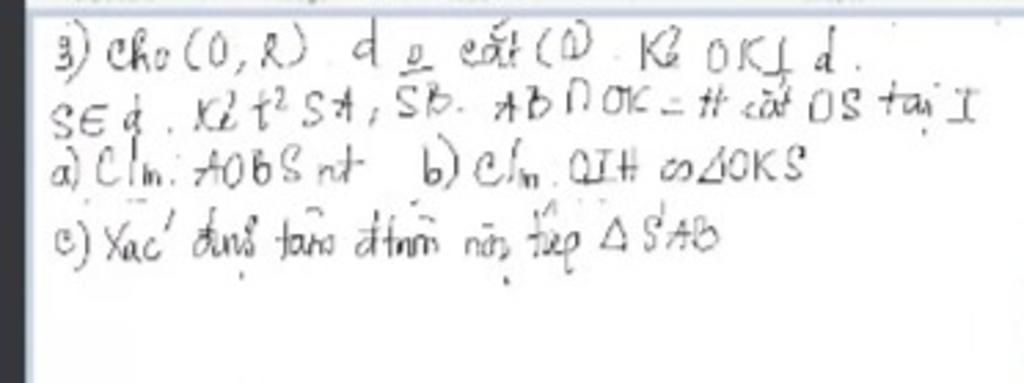 3) Cho (O, R) d o cắt (O). Kẻ OK⊥ d.
S∈ d. Kẻ t² SA, SB. AB ∩ OK = H cắt OS tại I
a) C/m: AOBS nt b) C/m. OIH ∽ ΔOKS
c) Xác định tâm đtròn nội tiếp Δ SAB